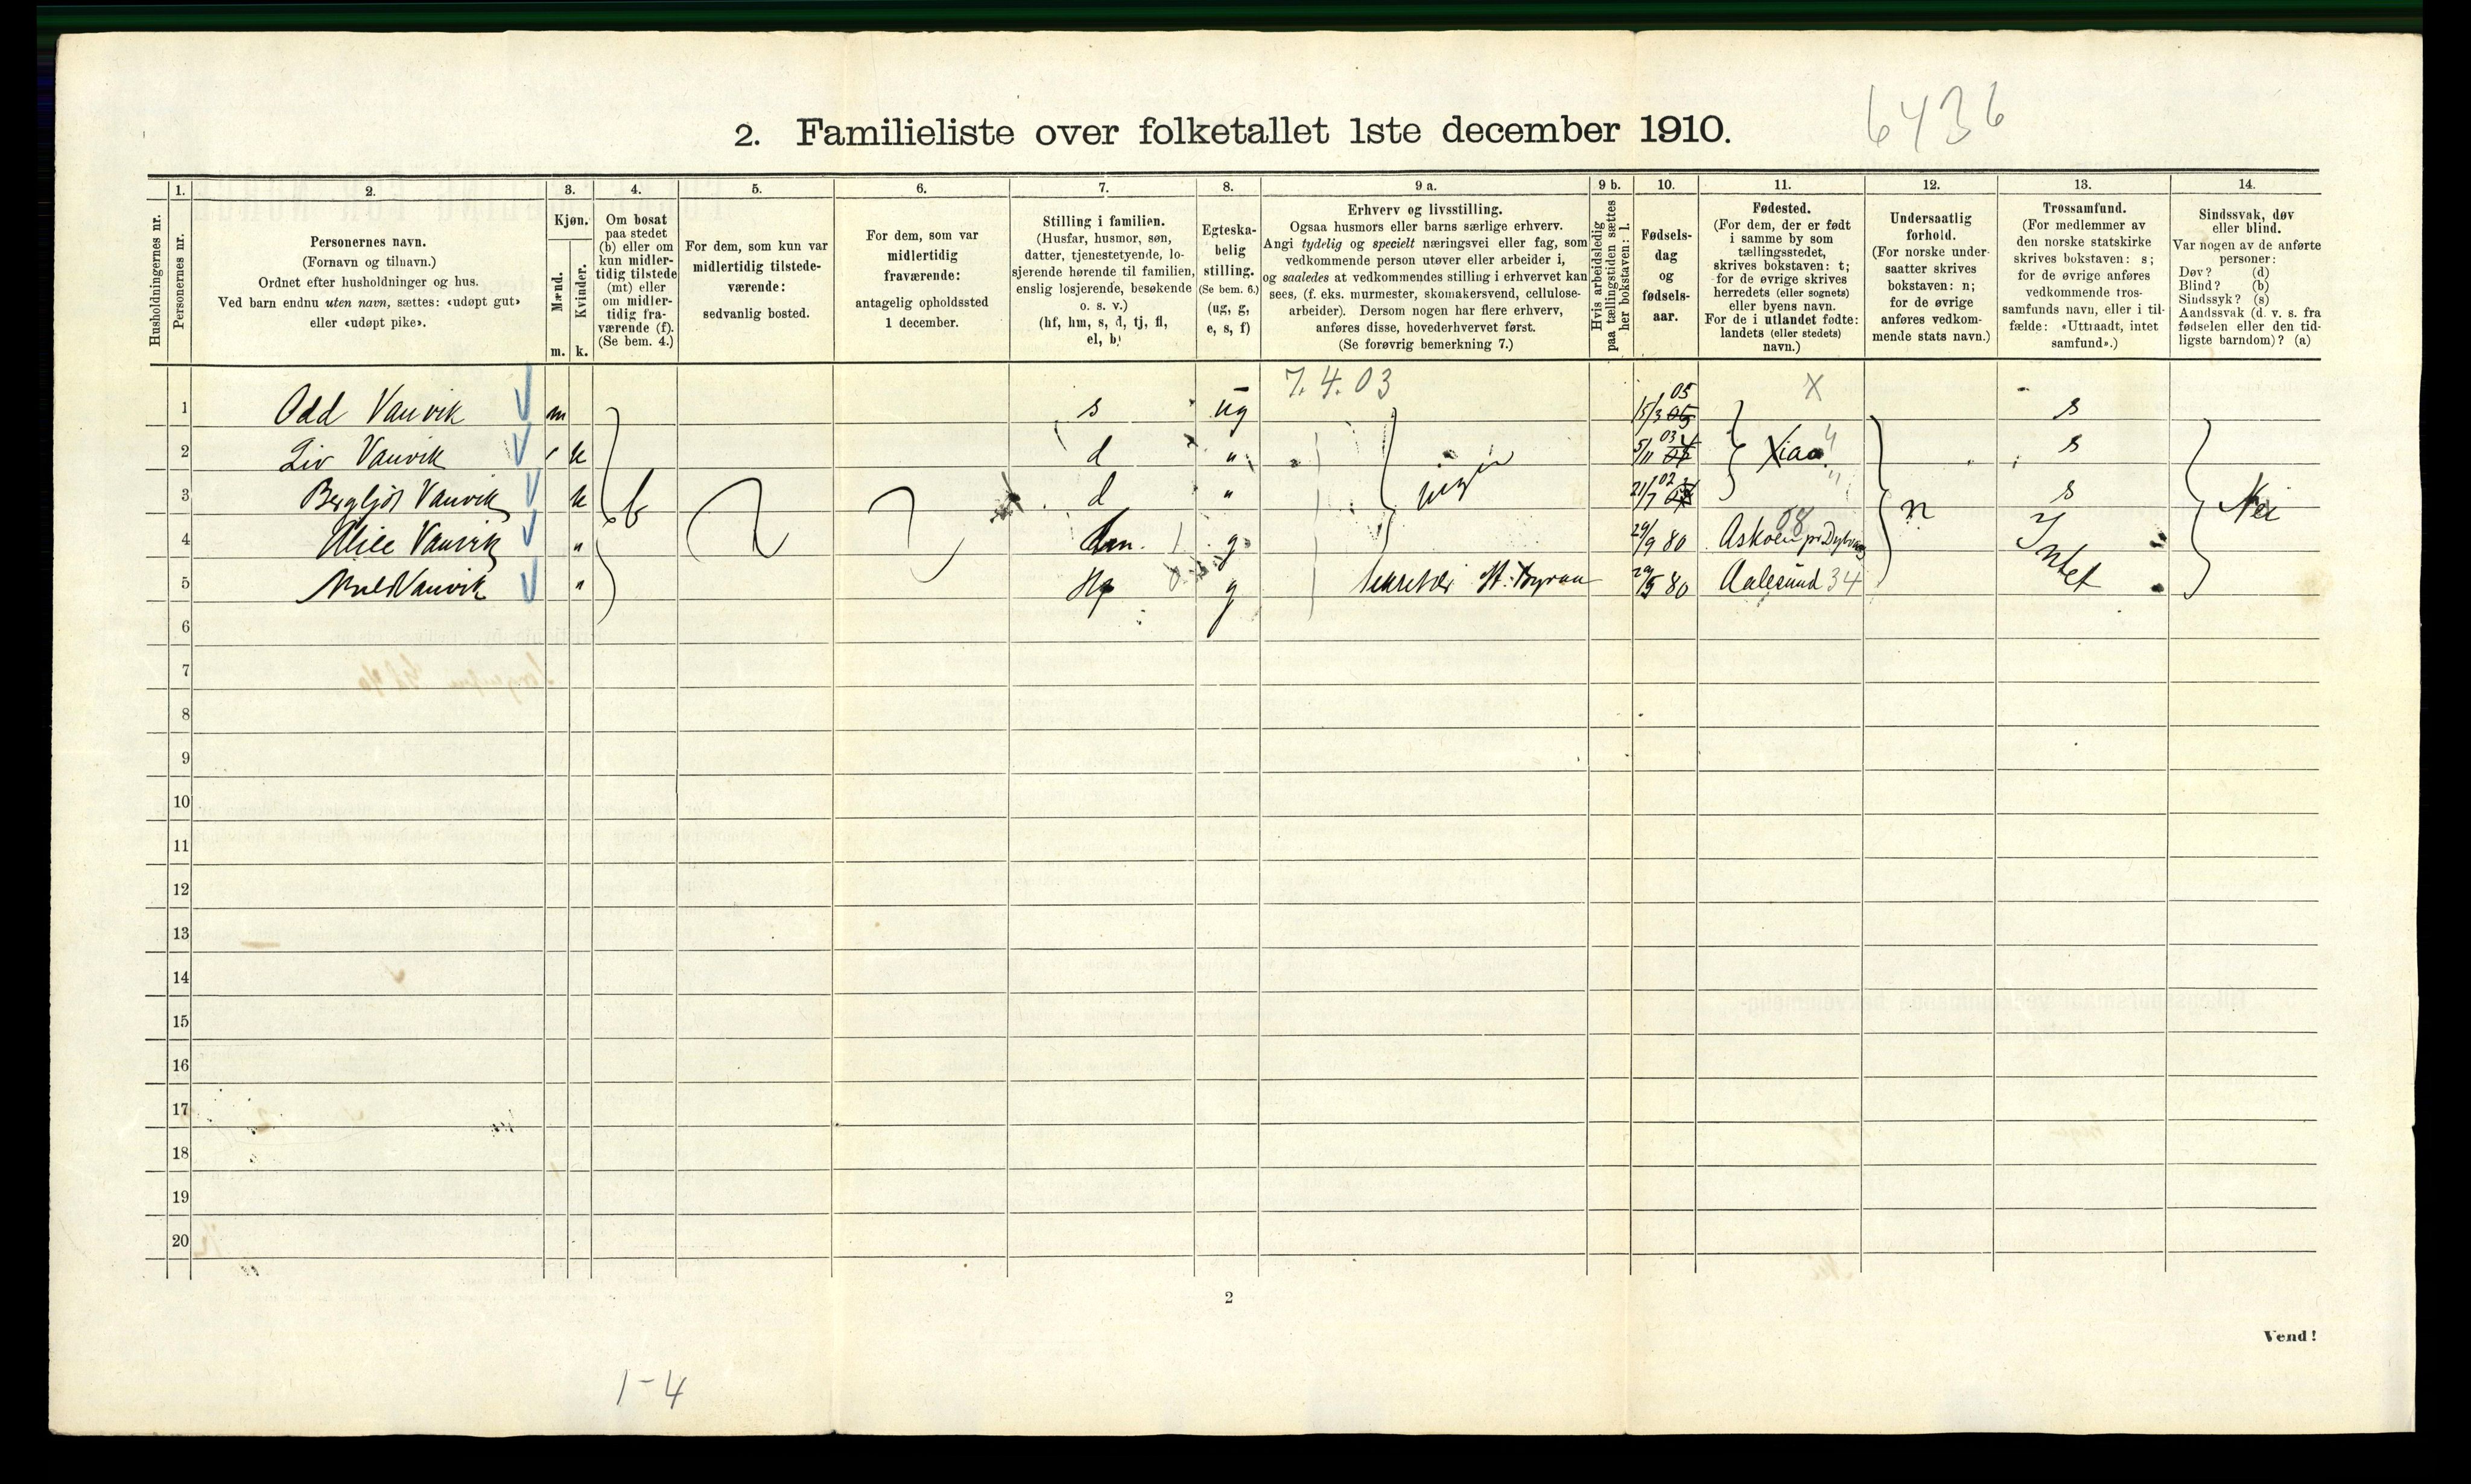 6436
2. Familieliste over folketallet 1ste december 1910.
1. 2. 3. 4. 5. 6. 7. 8. 9 a. 9 b. 10. 11. 12. 13. 14.
Husholdningernes nr.
Personernes nr.
Personernes navn.
(Fornavn og tilnavn.)
Ordnet efter husholdninger og hus.
Ved barn endnu uten navn, sættes: «udøpt gut»
eller «udøpt pike».
Kjøn.
Mænd.
Kvinder.
m. k.
Om bosat
paa stedet
(b) eller om
kun midler-
tidig tilstede
(mt) eller
om midler-
tidig fra-
værende (f).
(Se bem. 4.)
For dem, som kun var
midlertidig tilstede-
værende:
sedvanlig bosted.
For dem, som var
midlertidig
fraværende:
antagelig opholdssted
1 december.
Stilling i familien.
(Husfar, husmor, søn,
datter, tjenestetyende, lo-
sjerende hørende til familien,
enslig losjerende, besøkende
o. s. v.)
(hf, hm, s, d, tj, fl,
el, b)
Egteska-
belig
stilling.
(Se bem. 6.)
(ug, g,
e, s, f)
Erhverv og livsstilling.
Ogsaa husmors eller barns særlige erhverv.
Angi tydelig og specielt næringsvei eller fag, som
vedkommende person utøver eller arbeider i,
og saaledes at vedkommendes stilling i erhvervet kan
sees, (f. eks. murmester, skomakersvend, cellulose-
arbeider). Dersom nogen har flere erhverv,
anføres disse, hovederhvervet først.
(Se forøvrig bemerkning 7.)
Hvis arbeidsledig
paa tællingstiden sættes
her bokstaven: l.
Fødsels-
dag
og
fødsels-
aar.
Fødested.
(For dem, der er født
i samme by som
tællingsstedet,
skrives bokstaven: t;
for de øvrige skrives
herredets (eller sognets)
eller byens navn.
For de i utlandet fødte:
landets (eller stedets)
navn.)
Undersaatlig
forhold.
(For norske under-
saatter skrives
bokstaven: n;
for de øvrige
anføres vedkom-
mende stats navn.)
Trossamfund.
(For medlemmer av
den norske statskirke
skrives bokstaven: s;
for de øvrige anføres
vedkommende tros-
samfunds navn, eller i til-
fælde: «Uttraadt, intet
samfund».)
Sindssvak, døv
eller blind.
Var nogen av de anførte
personer:
Døv? (d)
Blind? (b)
Sindssyk? (s)
Aandssvak (d. v. s. fra
fødselen eller den tid-
ligste barndom)? (a)
7.4.03 X
1 Odd Vanvik m s ug 15/3 05 s
2 Liv Vanvik k d " 5/11 03 Xiaa s
3 Bergljot Vanvik k d " ingen 21/7 02 s
b n Nei
4 Alice Vanvik " hm. g 29/9 80 Askøen pr Dybvaag 08 Intet
5 Vanvik " Hf g sekretær St. Byraa 29/5 80 Aalesund 34
6
7
8
9
10
11
12
13
14
15
16
17
18
19
20
2
Vend!
1-4